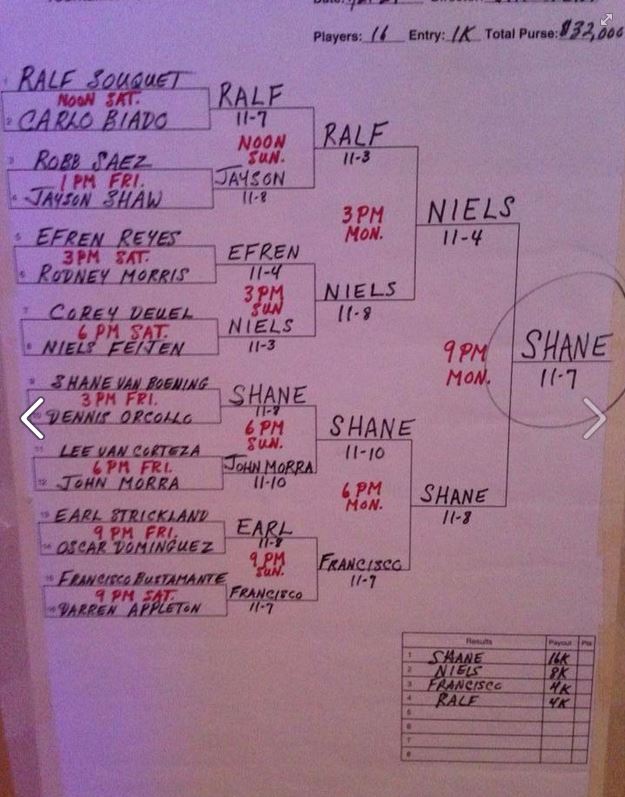 Players: 16 Entry: 1K Total Purse: $32,000
1 RALF SOUQUET
NOON SAT.
2 CARLO BIADO
RALF
11-7
NOON
SUN.
3 ROBB SAEZ
1 PM FRI.
4 JAYSON SHAW
JAYSON
11-8
RALF
11-3
3 PM
MON.
5 EFREN REYES
3 PM SAT.
6 RODNEY MORRIS
EFREN
11-4
3 PM
SUN
7 COREY DEUEL
6 PM SAT.
8 NIELS FEIJEN
NIELS
11-3
NIELS
11-8
NIELS
11-4
9 PM
MON.
SHANE
11-7
9 SHANE VAN BOENING
3 PM FRI.
10 DENNIS ORCOLLO
SHANE
11-8
6 PM
SUN.
11 LEE VAN CORTEZA
6 PM FRI.
12 JOHN MORRA
JOHN MORRA
11-10
SHANE
11-10
6 PM
MON.
SHANE
11-8
13 EARL STRICKLAND
9 PM FRI.
14 OSCAR DOMINGUEZ
EARL
11-8
9 PM
SUN.
15 FRANCISCO BUSTAMANTE
9 PM SAT.
16 DARREN APPLETON
FRANCISCO
11-7
FRANCISCO
11-7
Results Payout Pts
1 SHANE 16K
2 NIELS 8K
3 FRANCISCO 4K
4 RALF 4K
5
6
7
8